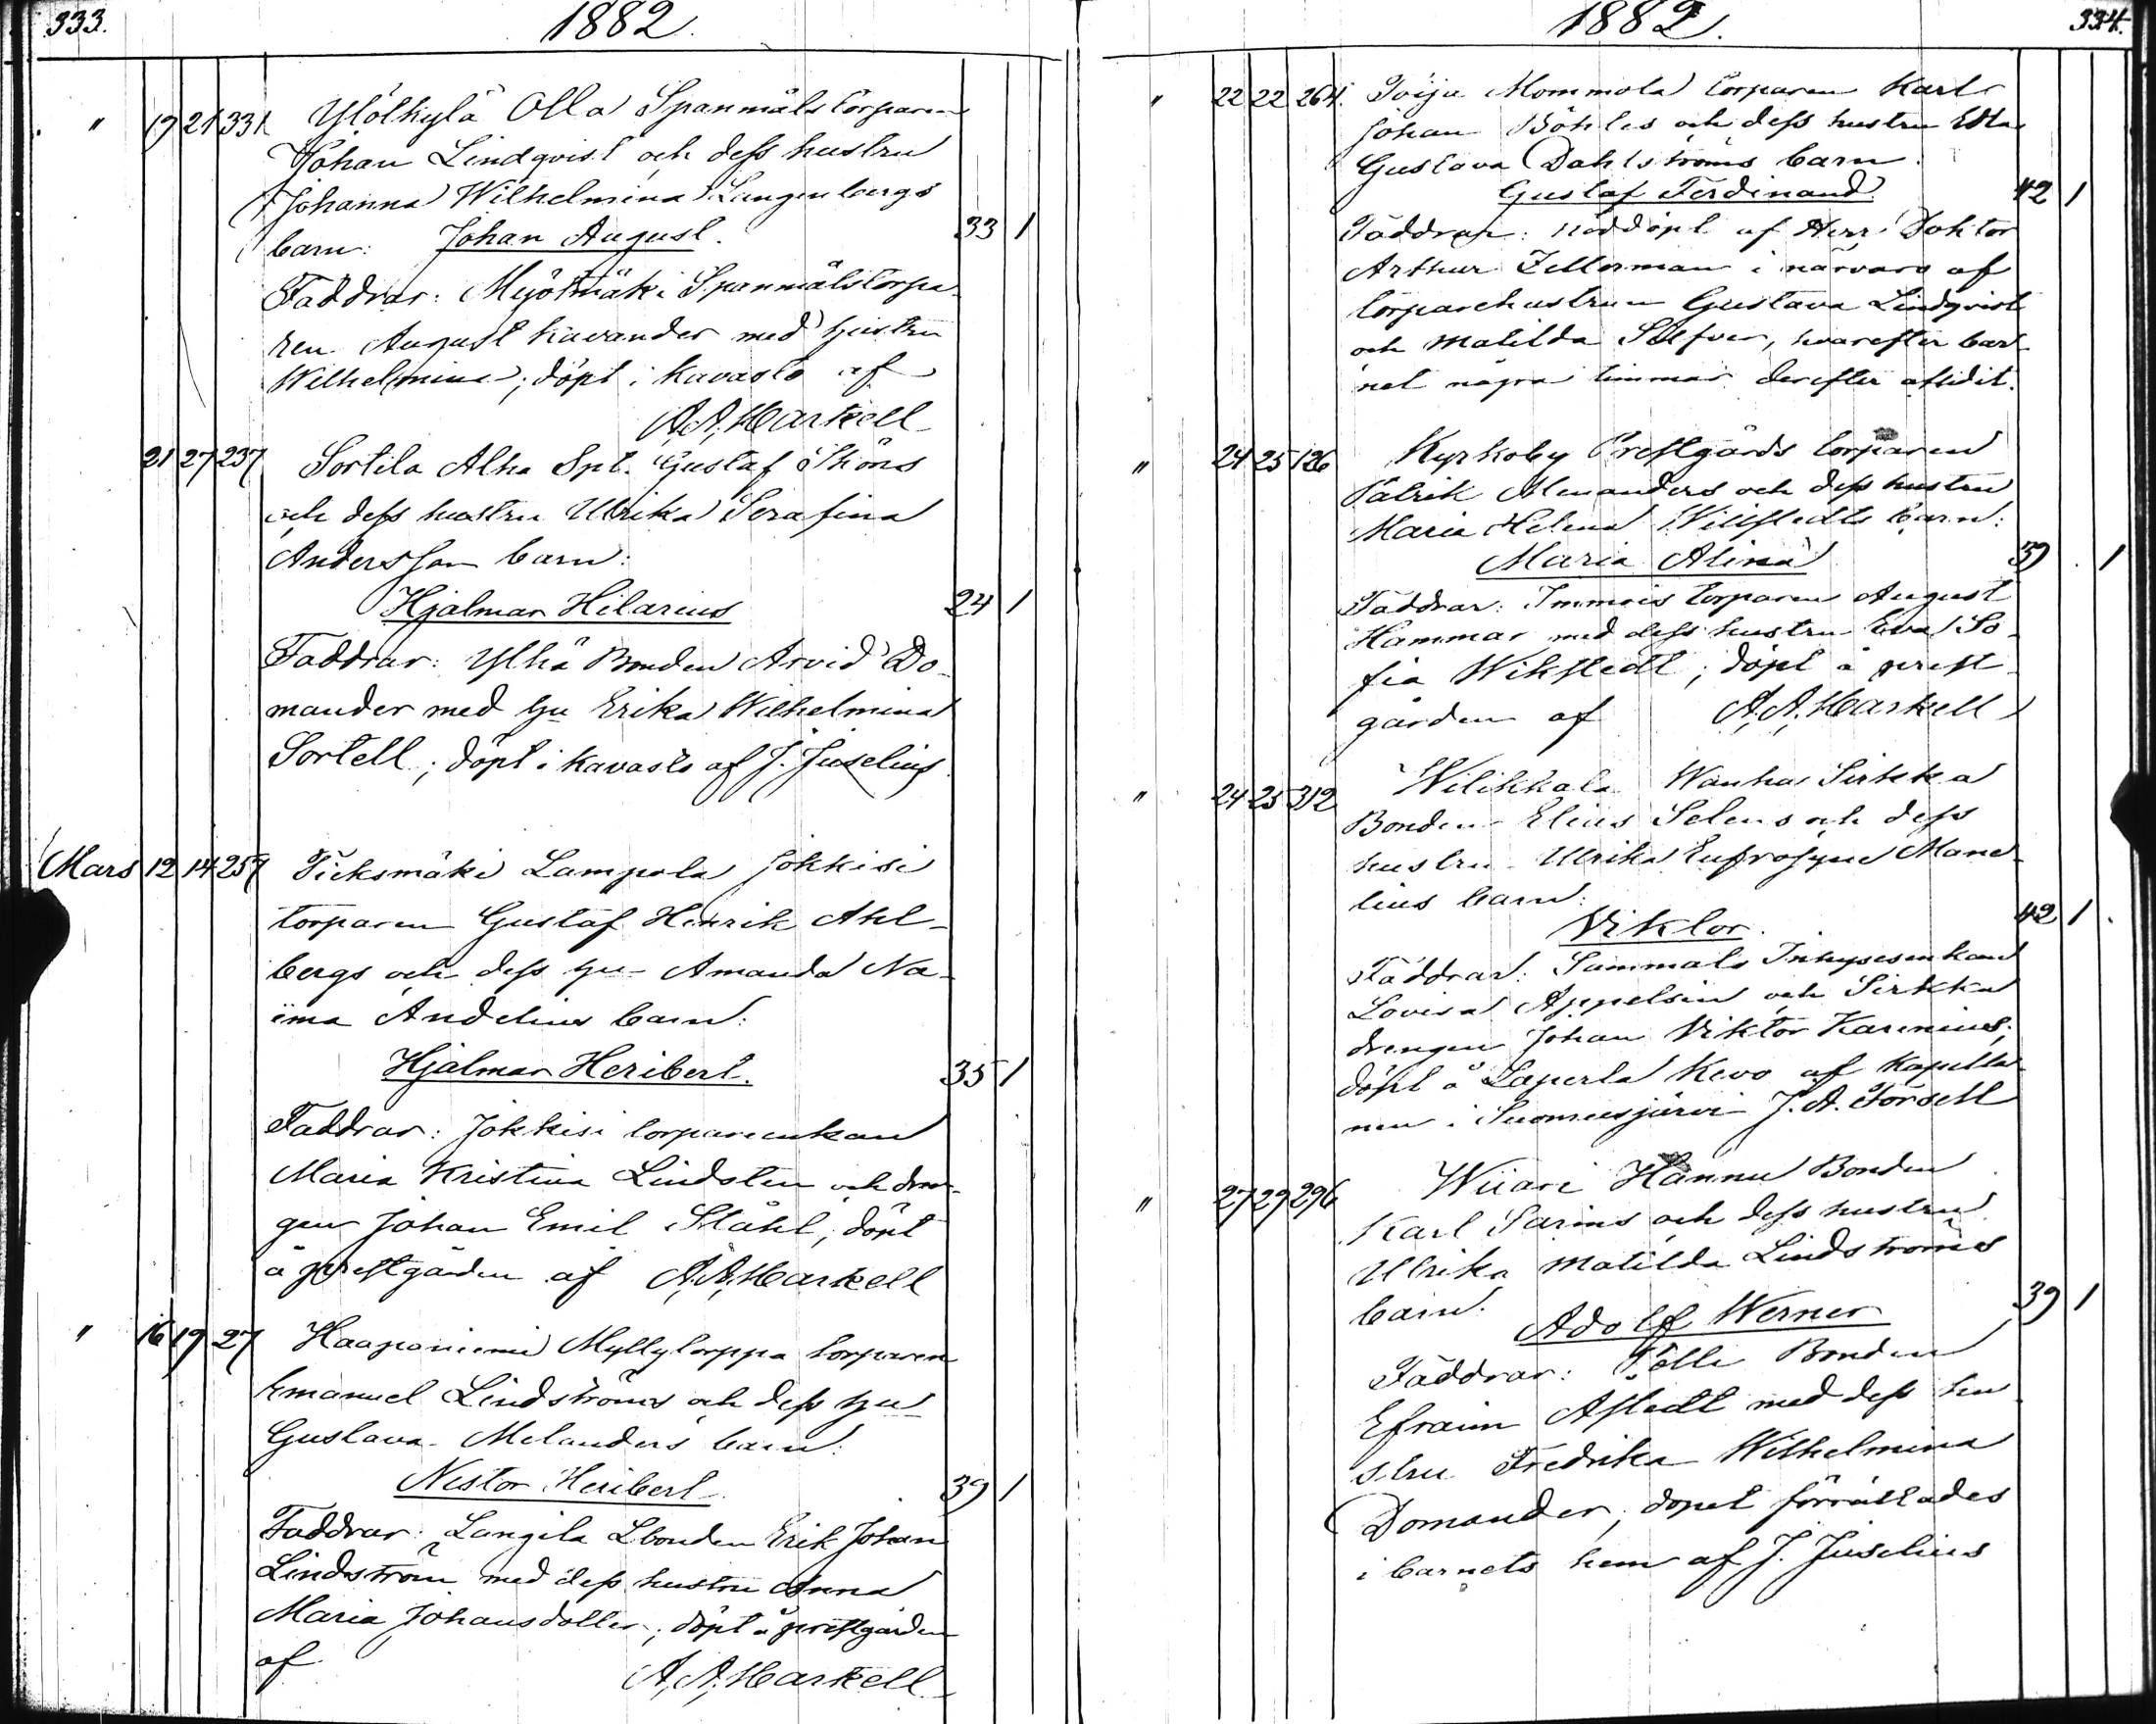 333.
1882.
" 19 21 331 Ylölkylä Olla Spanmåls torparen
Johan Lindqvist och dess hustru
Johanna Wilhelmina Langenbergs
barn: Johan August. 33 1
Faddrar: Myötmäki Spanmålstorpa-
ren August Kavander med hustru
Wilhelmina; döpt i Kavasto af
A. A. Markell
21 27 237 Sortila Alha Spt. Gustaf Sköns
och dess hustru Ulrika Serafina
Andersson barn:
Hjalmar Hilarius 24 1
Faddrar: Ylhä Bonden Arvid Do-
mander med hu Erika Wilhelmina
Sortell; döpt i Kavasto af J. Juselius
Mars 12 14 257 Tieksmäki Lampola Jokkisi
torparen Gustaf Henrik Ahl-
bergs och dess hu- Amanda Na-
ima Andelius barn:
Hjalmar Heribert. 35 1
Faddrar: Jokkisi torpareenkan
Maria Kristina Lindsten och dren-
gen Johan Emil Ståhl; döpt
å prestgården af A. A. Markell
" 16 19 27 Haaponiemi Myllytorppa torparen
Emanuel Lindströms och dess hu-
Gustava Melanders barn:
Nestor Heribert. 39 1
Faddrar: Langila Lbonden Erik Johan
Lindström med dess hustru Anna
Maria Johansdotter; döpt å prestgården
af A. A. Markell
1882.
334.
" 22 22 264. Toija Mommola torparen Karl
Johan Böhles och dess hustru Edla
Gustava Dahlströms barn.
Gustaf Ferdinand. 42 1
Faddrar: nöddöpt af Herr Doktor
Arthur Zellerman i närvaro af
torparehustrun Gustava Lindqvist
och Matilda Silfver, hvarefter bar-
net några timmar derefter aflidit.
" 24 25 126 Kyrkoby Prestgårds torparen
Patrik Alenanders och dess hustru
Maria Helena Willstedts barn:
Maria Alina 39 1
Faddrar: Immois torparen August
Hammar med dess hustru Eva So-
fia Wikstedt; döpt å prest-
gården af A. A. Markell
" 24 25 312 Wilikkala Wanha Sirkka
Bonden Elias Selens och dess
hustru Ulrika Eufrosyne Mane-
lius barn:
Viktor. 42 1
Faddrar: Sammalo Inhysesenkan
Lovisa Appelsin och Sirkka
drengen Johan Viktor Karenius;
döpt å Laperla Kevo af Kapella-
nen i Suomusjärvi J. A. Forsell
" 27 29 296 Wiiari Hannu Bonden
Karl Sarins och dess hustru
Ulrika Matilda Lindströms
barn. Adolf Werner 39 1
Faddrar: Pelle Bonden
Efraim Astedt med dess hu
stru Fredrika Wilhelmina
Domander; dopet förrättades
i barnets hem af J. Juselius